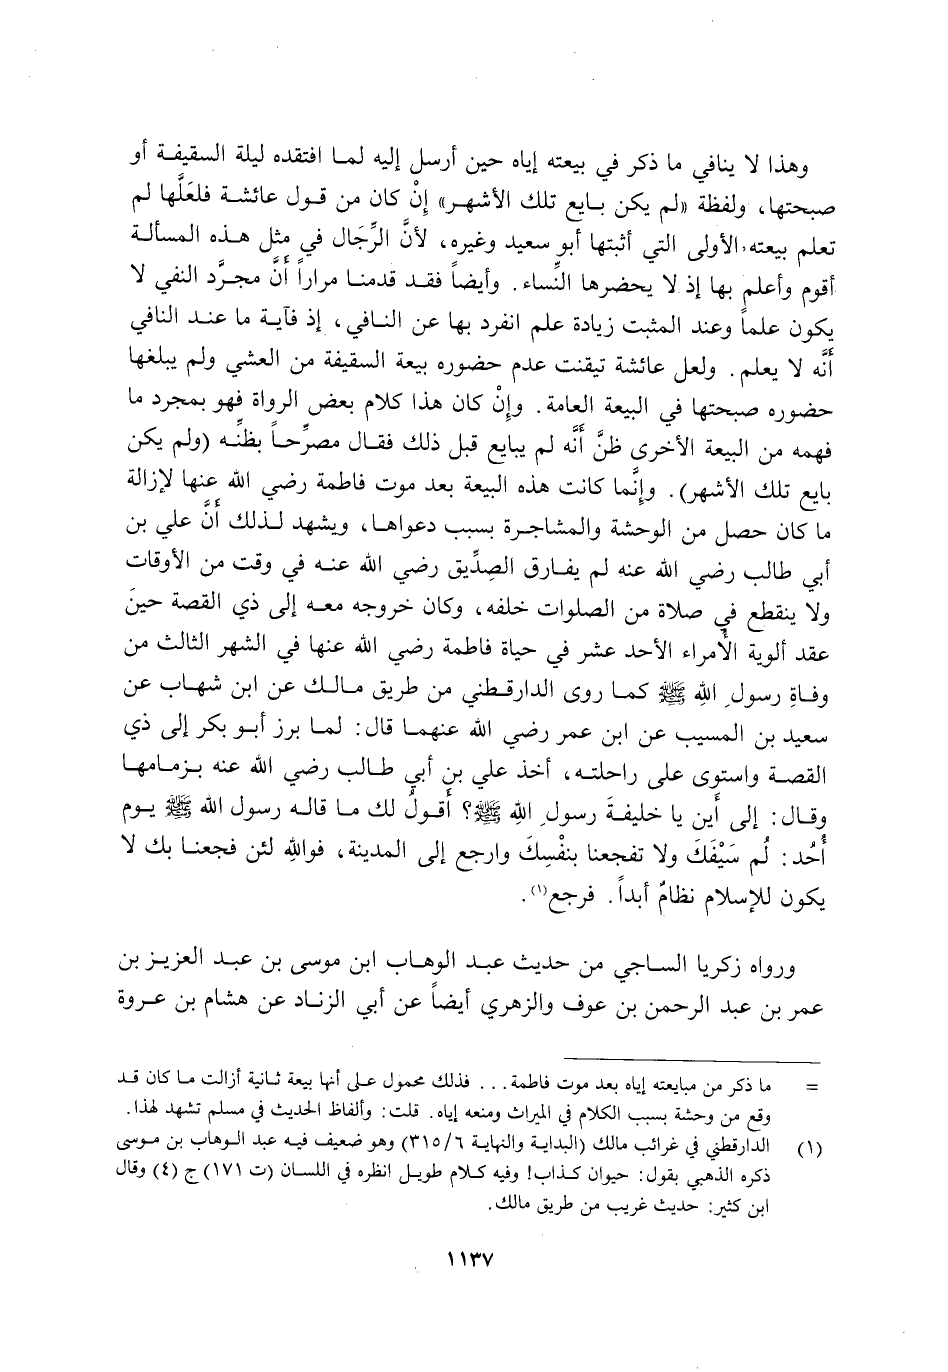 وهذا لا ينافي ما ذكر في بيعته إياه حين أرسل إليه لما افتقده ليلة السقيفة أو
صبحتها، ولفظة «لم يكن بايع تلك الأشهر» إنْ كان من قول عائشة فلعَلَّها لم
تعلم بيعته الأولى التي أثبتها أبو سعيد وغيره، لأنَّ الرِّجَال في مثل هذه المسألة
أقوم وأعلم بها إذ لا يحضرها النِّساء. وأيضاً فقد قدمنا مراراً أنَّ مجرَّد النفي لا
يكون علماً وعند المثبت زيادة علم انفرد بها عن النافي، إذ فآية ما عند النافي
أنَّه لا يعلم. ولعل عائشة تيقنت عدم حضوره بيعة السقيفة من العشي ولم يبلغها
حضوره صبحتها في البيعة العامة. وإنْ كان هذا كلام بعض الرواة فهو بمجرد ما
فهمه من البيعة الأخرى ظنَّ أنَّه لم يبايع قبل ذلك فقال مصرِّحاً بظنِّه (ولم يكن
بايع تلك الأشهر). وإنَّما كانت هذه البيعة بعد موت فاطمة رضي الله عنها لإزالة
ما كان حصل من الوحشة والمشاجرة بسبب دعواها، ويشهد لذلك أنَّ علي بن
أبي طالب رضي الله عنه لم يفارق الصِدِّيق رضي الله عنه في وقت من الأوقات
ولا ينقطع في صلاة من الصلوات خلفه، وكان خروجه معه إلى ذي القصة حينَ
عقد ألوية الأُمراء الأحد عشر في حياة فاطمة رضي الله عنها في الشهر الثالث من
وفاةِ رسولِ اللهِ ﷺ كما روى الدارقطني من طريق مالك عن ابن شهاب عن
سعيد بن المسيب عن ابن عمر رضي الله عنهما قال: لما برز أبو بكر إلى ذي
القصة واستوى على راحلته، أخذ علي بن أبي طالب رضي الله عنه بزمامها
وقال: إلى أَين يا خليفةَ رسولِ اللهِ ﷺ؟ أَقولُ لك ما قاله رسول الله ﷺ يوم
أُحُد: لُم سَيْفَكَ ولا تفجعنا بنفْسِكَ وارجع إلى المدينة، فواللهِ لئن فجعنا بك لا
يكون للإسلام نظامٌ أبداً. فرجع(١).
ورواه زكريا الساجي من حديث عبد الوهاب ابن موسى بن عبد العزيز بن
عمر بن عبد الرحمن بن عوف والزهري أيضاً عن أبي الزناد عن هشام بن عروة
= ما ذكر من مبايعته إياه بعد موت فاطمة... فذلك محمول على أنها بيعة ثانية أزالت ما كان قد
وقع من وحشة بسبب الكلام في الميراث ومنعه إياه. قلت: وألفاظ الحديث في مسلم تشهد لهذا.
(١) الدارقطني في غرائب مالك (البداية والنهاية ٣١٥/٦) وهو ضعيف فيه عبد الوهاب بن موسى
ذكره الذهبي بقول: حيوان كذاب! وفيه كلام طويل انظره في اللسان (ت ١٧١) ج (٤) وقال
ابن كثير: حديث غريب من طريق مالك.
١١٣٧